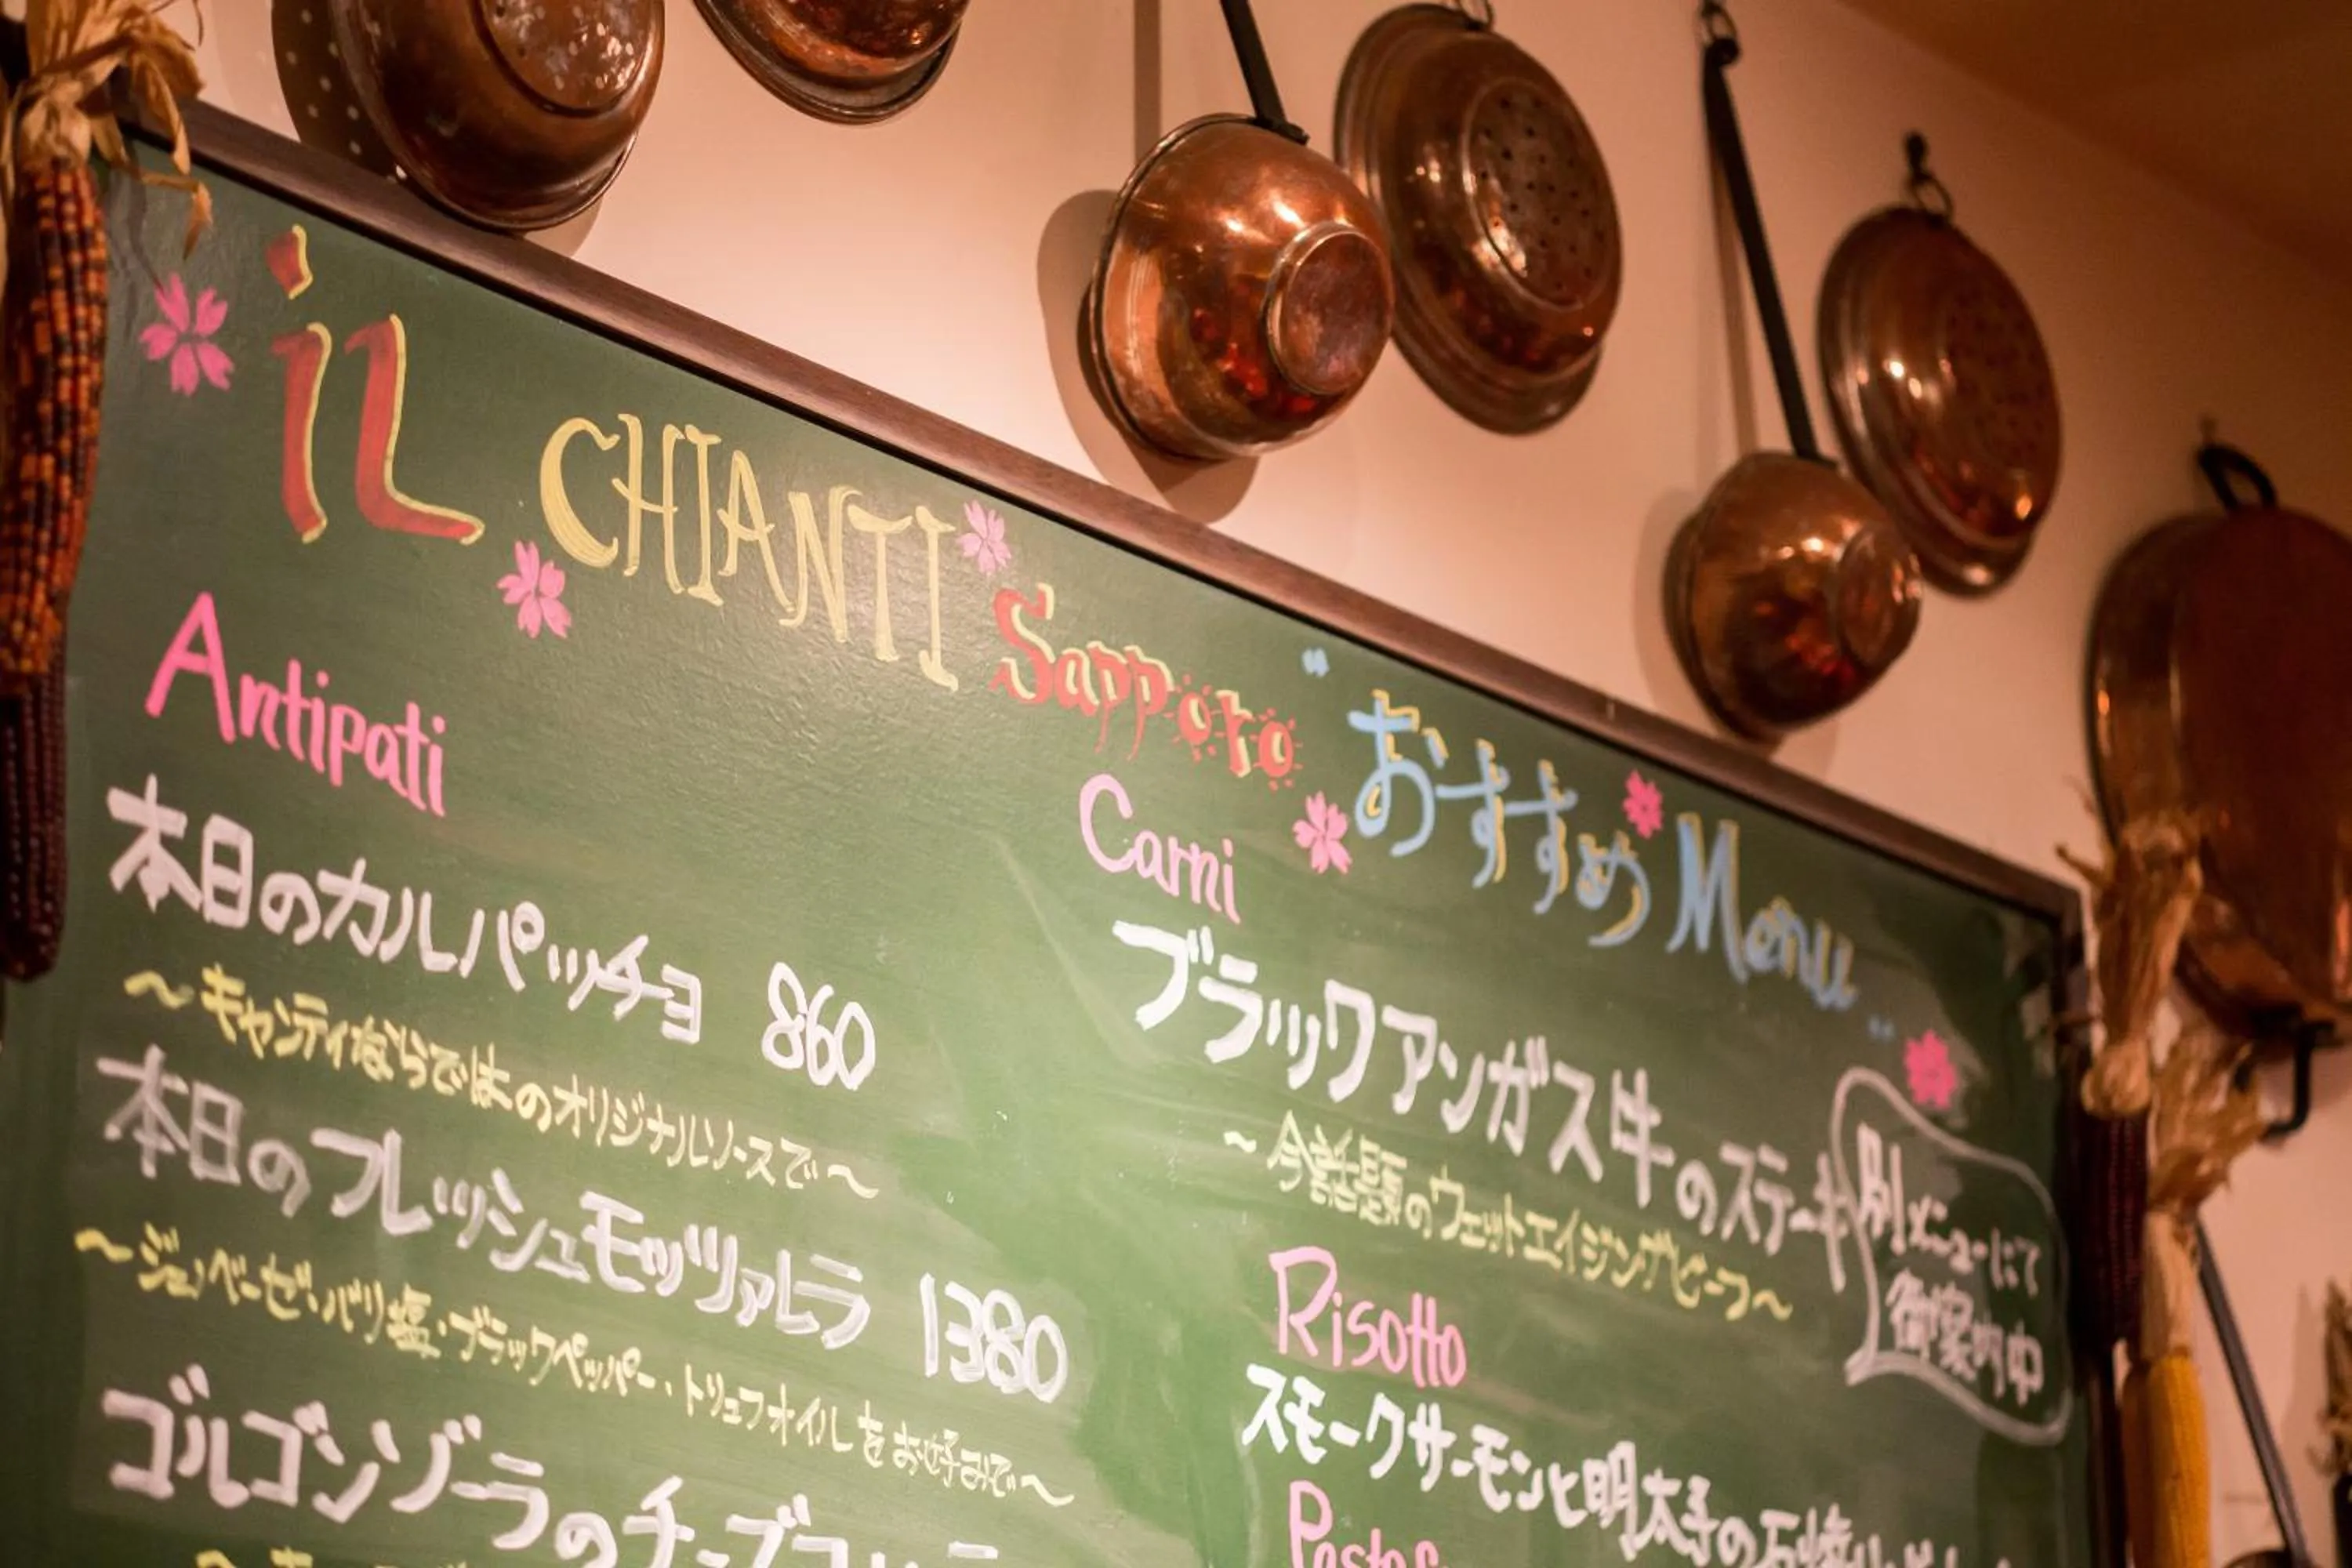 iL CHIANTI Sapporo "おすすめ Menu"
Antipati
本日のカルパッチョ 860
～キャンティならではのオリジナルソースで～
本日のフレッシュモッツァレラ 1380
～ジェノベーゼ・バリ塩・ブラックペッパー・トリュフオイルをお好みで～
ゴルゴンゾーラのチーズ
Carni
ブラックアンガス牛のステーキ
別メニューにて
御案内中
～今話題のウェットエイジングビーフ～
Risotto
スモークサーモンと明太子の石焼
Pasta